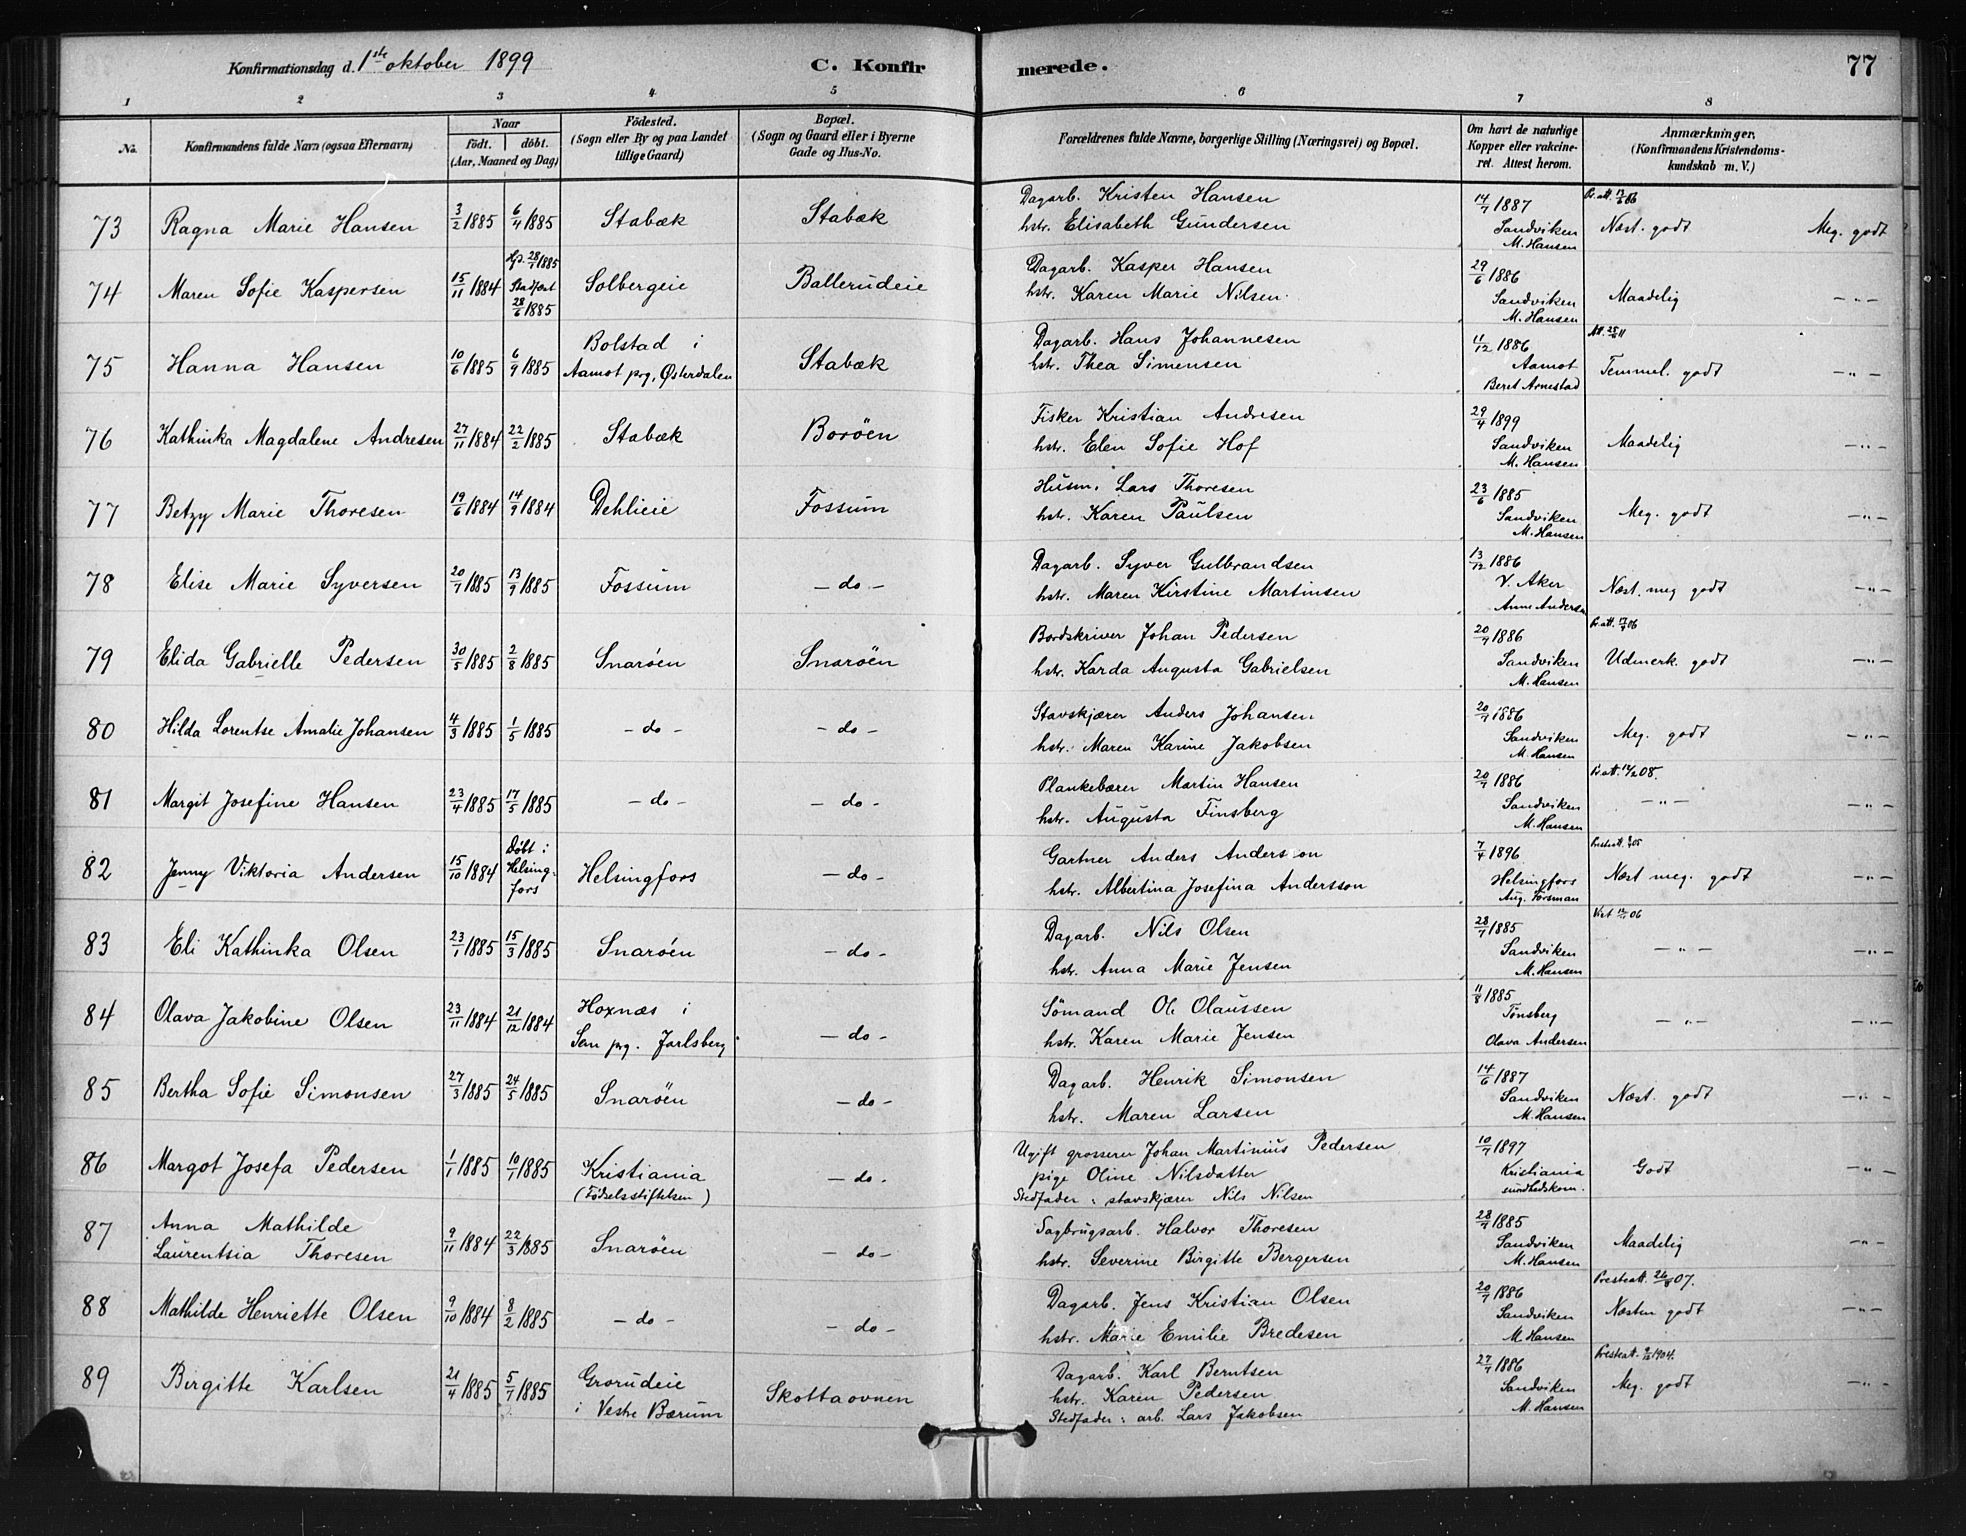 Konfirmationsdag d. 1ste oktober 1899 C. Konfirmerede. 77
1 2 3 4 5 6 7 8
No. Konfirmandens fulde Navn (ogsaa Efternavn) Naar født. døbt. (Aar, Maaned og Dag) Fødested. (Sogn eller By og paa Landet tillige Gaard) Bopæl. (Sogn og Gaard eller i Byerne Gade og Hus-No. Forældrenes fulde Navne, borgerlige Stilling (Næringsvei) og Bopæl. Om havt de naturlige Kopper eller vakcineret. Attest herom. Anmærkninger, (Konfirmandens Kristendomskundskab m. V.)
73 Ragna Marie Hansen 3/2 1885 6/4 1885 Stabæk Stabæk Dagarb. Kristen Hansen hstr. Elisabeth Gundersen 14/7 1887 Sandviken M. Hansen Næst. godt Meg. godt
74 Maren Sofie Kaspersen 15/11 1884 Hjd. 28/1 1885 Stadfæst 28/6 1885 Solbergeie Ballerudeie Dagarb. Kasper Hansen hstr. Karen Marie Nilsen 29/6 1886 Sandviken M. Hansen Maadelig -"-
75 Hanna Hansen 10/6 1885 6/9 1885 Bolstad i Aamot prg, Østerdalen Stabæk Dagarb. Hans Johannesen hstr. Thea Simensen 11/12 1886 Aamot Beret Arnestad Temmel. godt -"-
76 Kathinka Magdalene Andresen 27/11 1884 22/2 1885 Stabæk Borøen Fisker Kristian Andresen hstr. Elen Sofie Hof 29/4 1899 Sandviken M. Hansen Maadelig -"-
77 Betzy Marie Thoresen 19/6 1884 14/9 1884 Dehlieie Fossum Husm. Lars Thoresen hstr. Karen Paulsen 23/6 1885 Sandviken M. Hansen Meg. godt -"-
78 Elise Marie Syversen 20/7 1885 13/9 1885 Fossum - do - Dagarb. Syver Gulbrandsen hstr. Maren Kirstine Martinsen 13/12 1886 V. Aker Anne Andersen Næst. meg godt -"-
79 Elida Gabrielle Pedersen 30/5 1885 2/8 1885 Snarøen Snarøen Bordskriver Johan Pedersen hstr. Karda Augusta Gabrielsen 20/7 1886 Sandviken M. Hansen Udmerk. godt -"-
80 Hilda Lorentse Amalie Johansen 4/3 1885 1/5 1885 - do - - do - Stavskjærer Anders Johansen hstr. Maren Karine Jakobsen 20/7 1886 Sandviken M. Hansen Meg. godt -"-
81 Margit Josefine Hansen 23/4 1885 17/5 1885 - do - - do - Plankebærer Martin Hansen hstr. Augusta Finsberg 20/7 1886 Sandviken M. Hansen -"- -"-
82 Jenny Viktoria Andersen 15/10 1884 Døbt i Helsingfors Helsingfors - do - Gartner Anders Andersson hstr. Albertina Josefina Andersson 7/4 1896 Helsingfors Aug. Forsman Næst meg. godt -"-
83 Eli Kathinka Olsen 23/1 1885 15/3 1885 Snarøen - do - Dagarb. Nils Olsen hstr. Anna Marie Jensen 28/7 1885 Sandviken M. Hansen -"- -"-
84 Olava Jakobine Olsen 23/11 1884 21/12 1884 Hoxnæs i Sem prg. Jarlsberg - do - Sømand Ole Olaussen hstr. Karen Marie Jensen 11/8 1885 Tønsberg Olava Andersen -"- -"-
85 Bertha Sofie Simonsen 27/3 1885 24/5 1885 Snarøen - do - Dagarb. Henrik Simonsen hstr. Maren Larsen 14/6 1887 Sandviken M. Hansen Næst. godt -"-
86 Margot Josefa Pedersen 1/1 1885 10/1 1885 Kristiania (Fødselsstiftelsen) - do - Ugift grosserer Johan Martinius Pedersen pige Oline Nilsdatter Stedfader: stavskjærer Nils Nilsen 10/7 1897 Kristiania sundhedskom. Godt -"-
87 Anna Mathilde Laurentsia Thoresen 9/11 1884 22/3 1885 Snarøen - do - Sagbrugsarb. Halvor Thoresen hstr. Severine Birgitte Bergersen 28/7 1885 Sandviken M. Hansen Maadelig -"-
88 Mathilde Henriette Olsen 9/10 1884 8/2 1885 - do - - do - Dagarb. Jens Kristian Olsen hstr. Marie Emilie Bredesen 20/7 1886 Sandviken M. Hansen Presteatt. 26/8 07. Næsten godt -"-
89 Birgitte Karlsen 21/4 1885 5/7 1885 Grorudeie i Vestre Bærum Skottaovnen Dagarb. Karl Berntsen hstr. Karen Pedersen Stedfader: arb. Lars Jakobsen 27/7 1886 Sandviken M. Hansen Presteatt. 9/12 1904. Meg. godt -"-